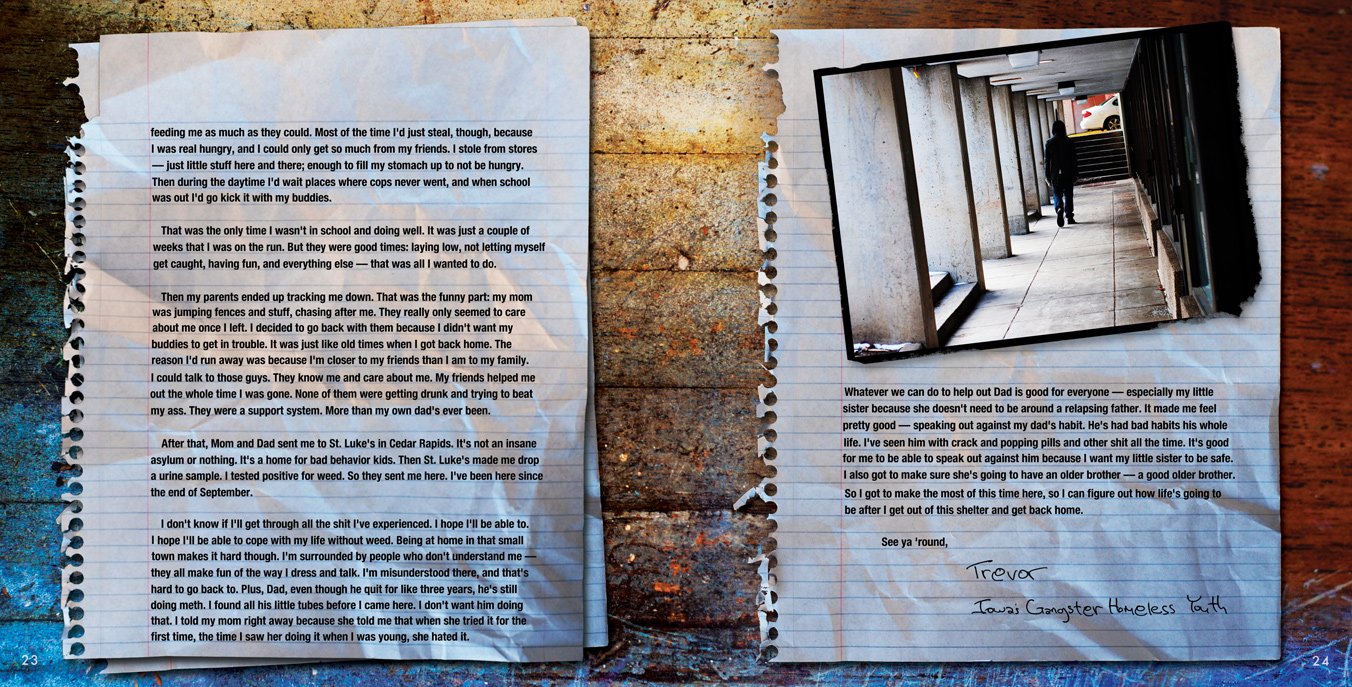 feeding me as much as they could. Most of the time I'd just steal, though, because
I was real hungry, and I could only get so much from my friends. I stole from stores
— just little stuff here and there; enough to fill my stomach up to not be hungry.
Then during the daytime I'd wait places where cops never went, and when school
was out I'd go kick it with my buddies.
That was the only time I wasn't in school and doing well. It was just a couple of
weeks that I was on the run. But they were good times: laying low, not letting myself
get caught, having fun, and everything else — that was all I wanted to do.
Then my parents ended up tracking me down. That was the funny part: my mom
was jumping fences and stuff, chasing after me. They really only seemed to care
about me once I left. I decided to go back with them because I didn't want my
buddies to get in trouble. It was just like old times when I got back home. The
reason I'd run away was because I'm closer to my friends than I am to my family.
I could talk to those guys. They know me and care about me. My friends helped me
out the whole time I was gone. None of them were getting drunk and trying to beat
my ass. They were a support system. More than my own dad's ever been.
After that, Mom and Dad sent me to St. Luke's in Cedar Rapids. It's not an insane
asylum or nothing. It's a home for bad behavior kids. Then St. Luke's made me drop
a urine sample. I tested positive for weed. So they sent me here. I've been here since
the end of September.
I don't know if I'll get through all the shit I've experienced. I hope I'll be able to.
I hope I'll be able to cope with my life without weed. Being at home in that small
town makes it hard though. I'm surrounded by people who don't understand me —
they all make fun of the way I dress and talk. I'm misunderstood there, and that's
hard to go back to. Plus, Dad, even though he quit for like three years, he's still
doing meth. I found all his little tubes before I came here. I don't want him doing
that. I told my mom right away because she told me that when she tried it for the
first time, the time I saw her doing it when I was young, she hated it.
23
Whatever we can do to help out Dad is good for everyone — especially my little
sister because she doesn't need to be around a relapsing father. It made me feel
pretty good — speaking out against my dad's habit. He's had bad habits his whole
life. I've seen him with crack and popping pills and other shit all the time. It's good
for me to be able to speak out against him because I want my little sister to be safe.
I also got to make sure she's going to have an older brother — a good older brother.
So I got to make the most of this time here, so I can figure out how life's going to
be after I get out of this shelter and get back home.
See ya 'round,
Trevor
Iowa's Gangster Homeless Youth
24